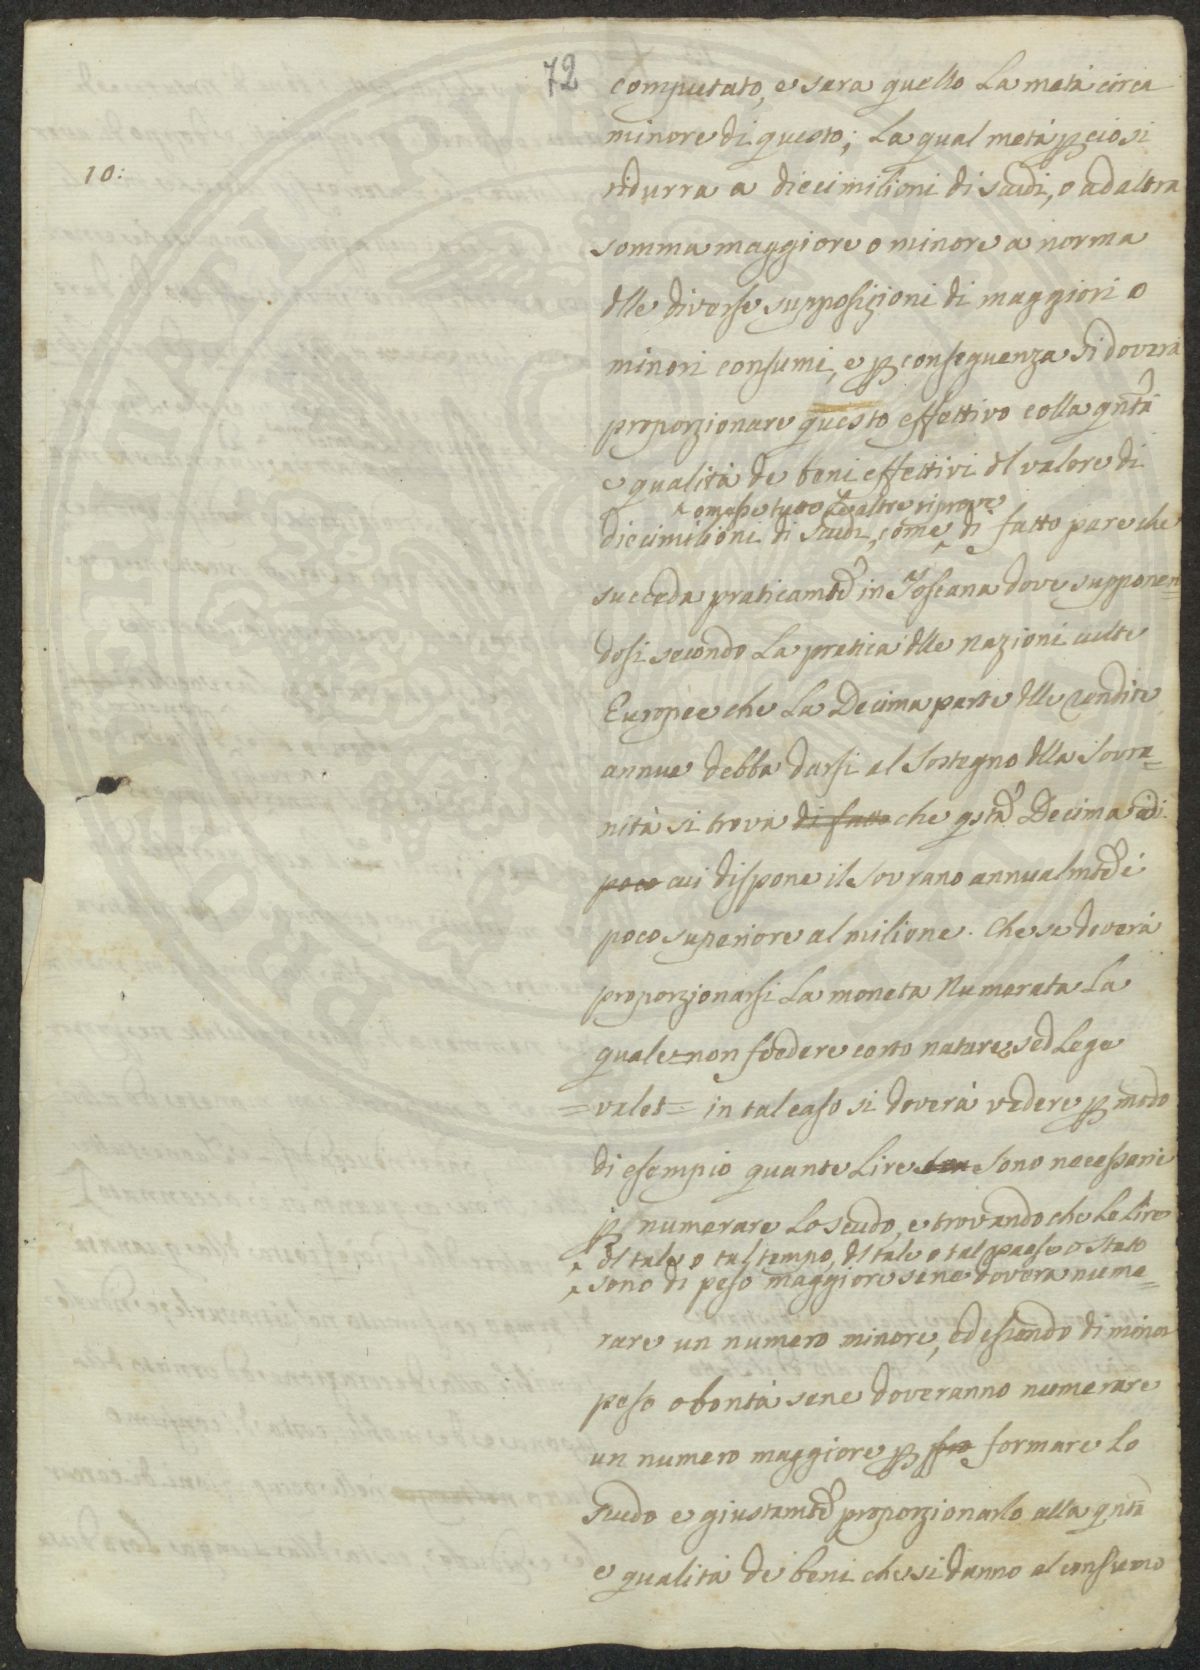 72
10:
computato, e sara quello La metà circa
minore di questo; La qual metà p ciò si
ridurra a diecimilioni di scudi, o ad altra
somma maggiore o minore a norma
dlle diverse supposizioni di maggiori o
minori consumi, e p conseguenza si doverà
proporzionare questo effettivo colla qntà
e qualità de beni effettivi dl valore di
omesse tutte Le altre riprove
diecimilioni di scudi, come di fatto pare che
succeda praticamte in Toscana dove supponen=
dosi secondo La pratica dlle nazioni culte
Europee che La Decima parte dlle rendite
annue debba darsi al Sostegno dlla Sovra=
nità si trova di fatto che qsta Decima di
poco cui dispone il Sovrano annualmte è
poco superiore al milione. Che se doverà
proporzionarsi La moneta Numerata La
quale = non foedere certo naturae sed Lege
= valet = in tal caso si doverà vedere p modo
di esempio quante Lire sono necessarie
p numerare Lo scudo, e trovando che Le Lire
dl tale o tal tempo, dl tale o tal paese o stato
sono di peso maggiore se ne doverà nume=
rare un numero minore, ed essendo di minor
peso o bontà se ne doveranno numerare
un numero maggiore p formare Lo
scudo e giustamte proporzionarlo alla qntà
e qualità de beni che si danno al consumo